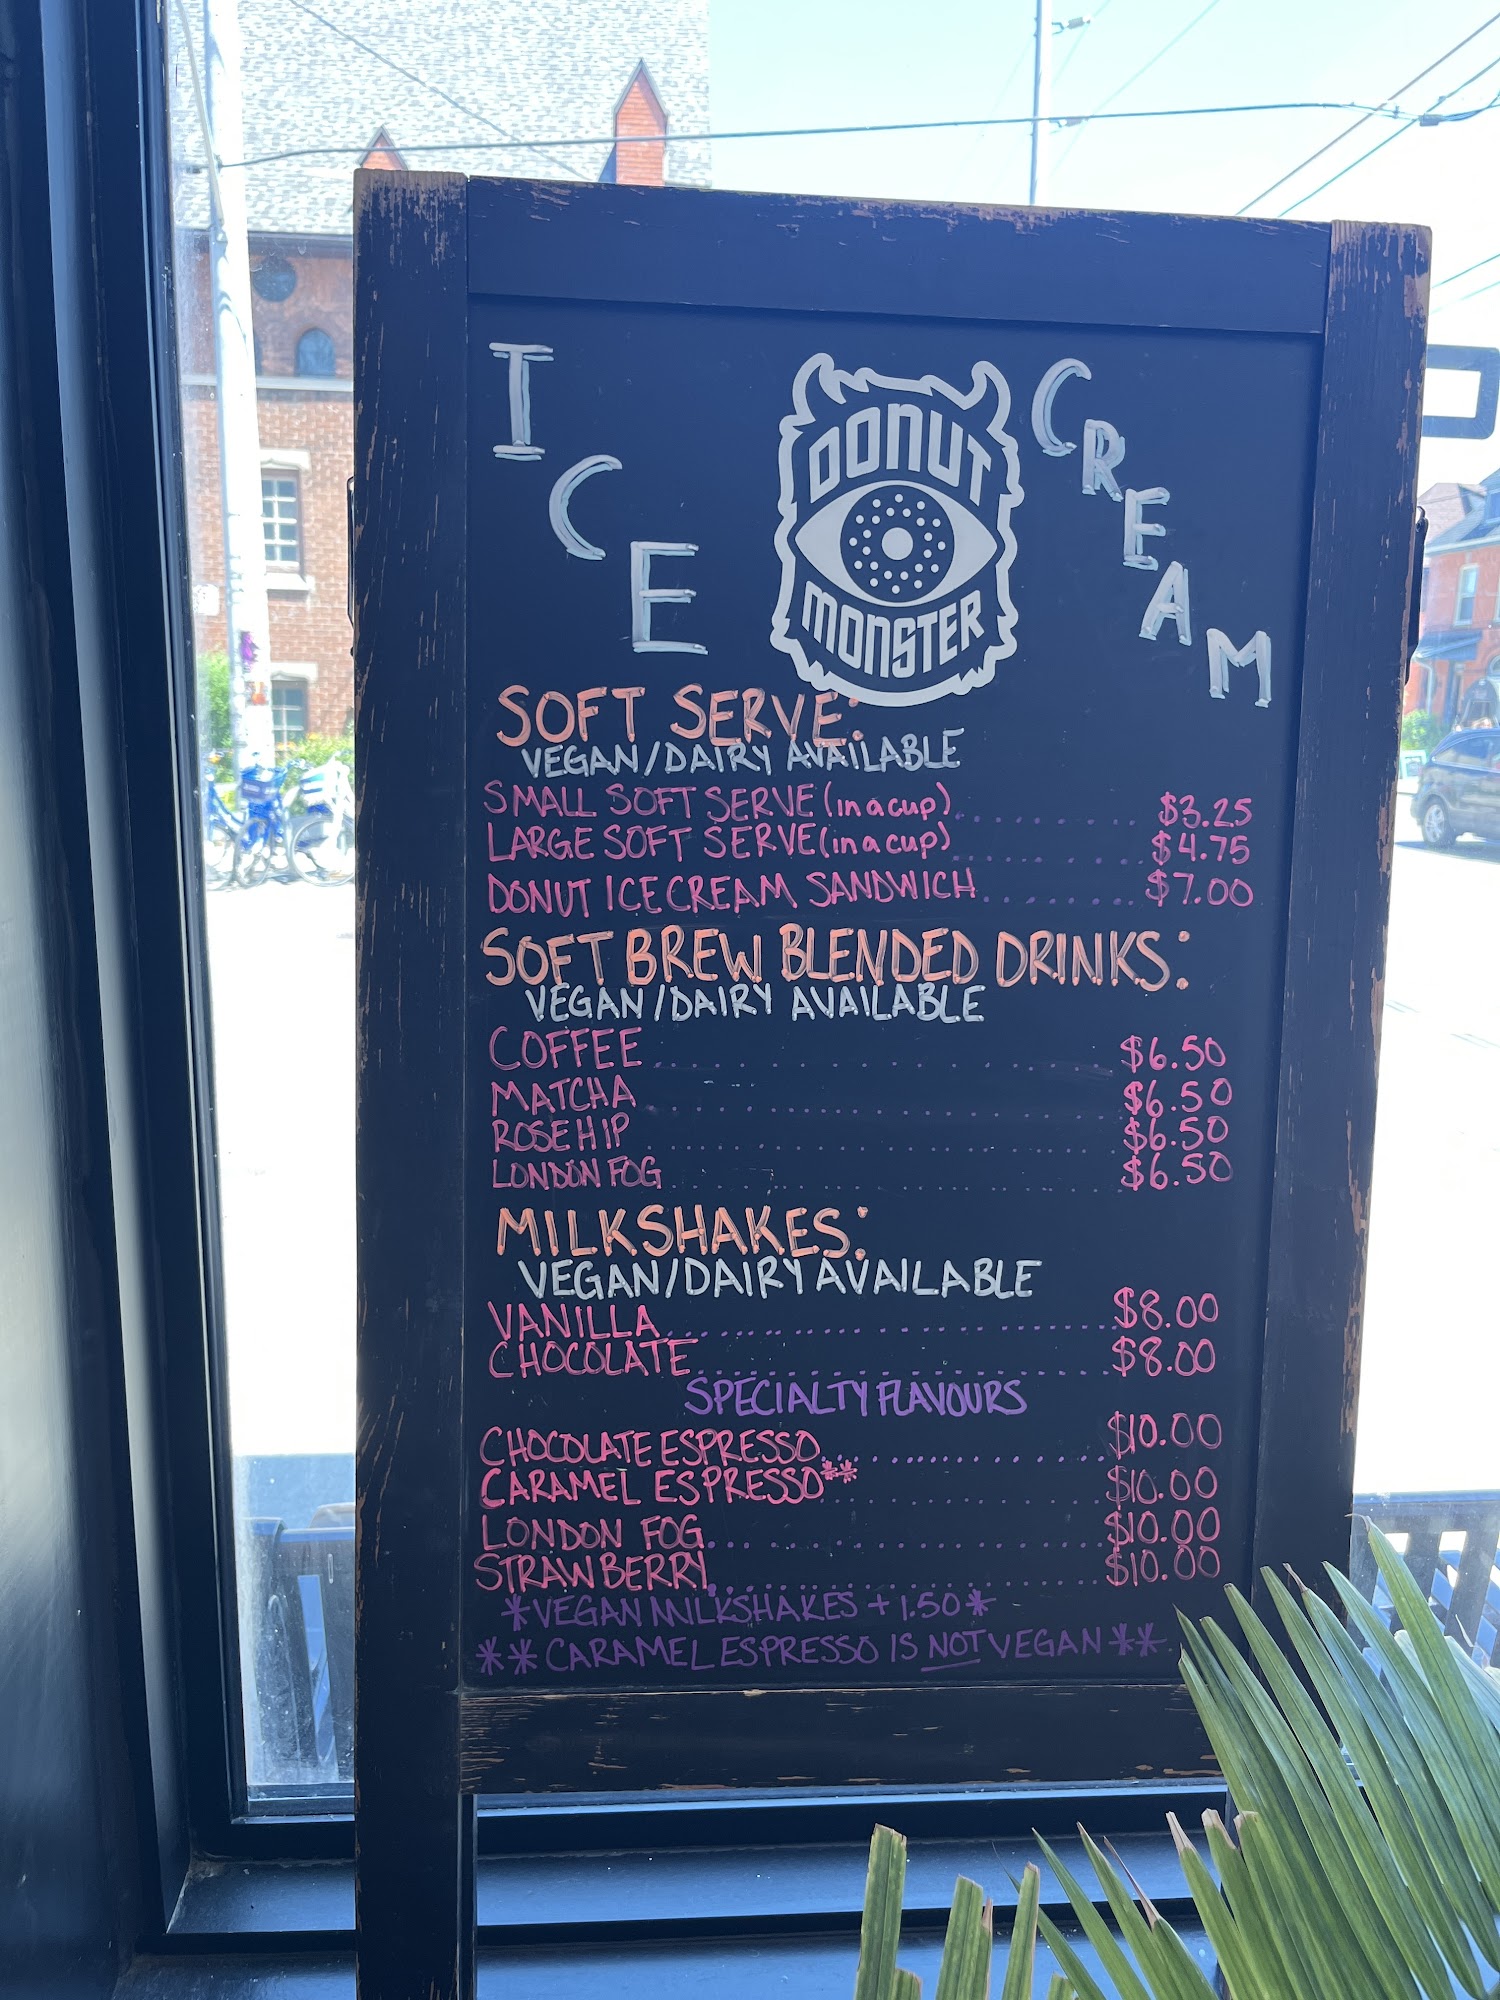 ICE
CREAM
DONUT
MONSTER
SOFT SERVE:
VEGAN/DAIRY AVAILABLE
SMALL SOFT SERVE (in a cup).......... $3.25
LARGE SOFT SERVE (in a cup).......... $4.75
DONUT ICE CREAM SANDWICH.......... $7.00
SOFT BREW BLENDED DRINKS:
VEGAN/DAIRY AVAILABLE
COFFEE.......... $6.50
MATCHA.......... $6.50
ROSEHIP.......... $6.50
LONDON FOG.......... $6.50
MILKSHAKES:
VEGAN/DAIRY AVAILABLE
VANILLA.......... $8.00
CHOCOLATE.......... $8.00
SPECIALTY FLAVOURS
CHOCOLATE ESPRESSO.......... $10.00
CARAMEL ESPRESSO**.......... $10.00
LONDON FOG.......... $10.00
STRAWBERRY.......... $10.00
*VEGAN MILKSHAKES + 1.50*
**CARAMEL ESPRESSO IS NOT VEGAN**